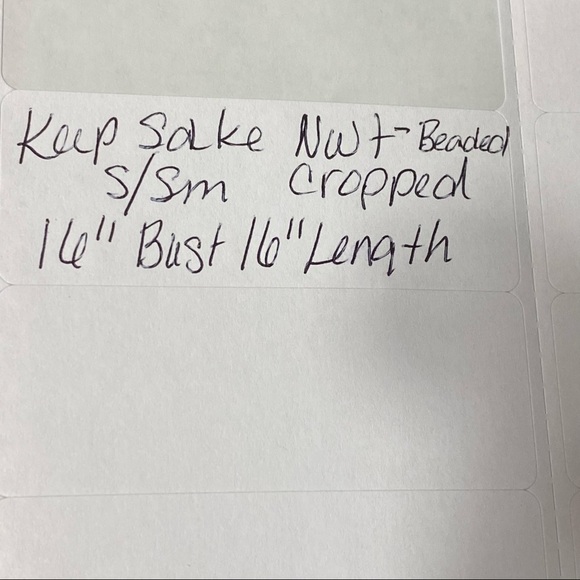 Keep Sake NWT-Beaded
S/Sm Cropped
16" Bust 16" Length